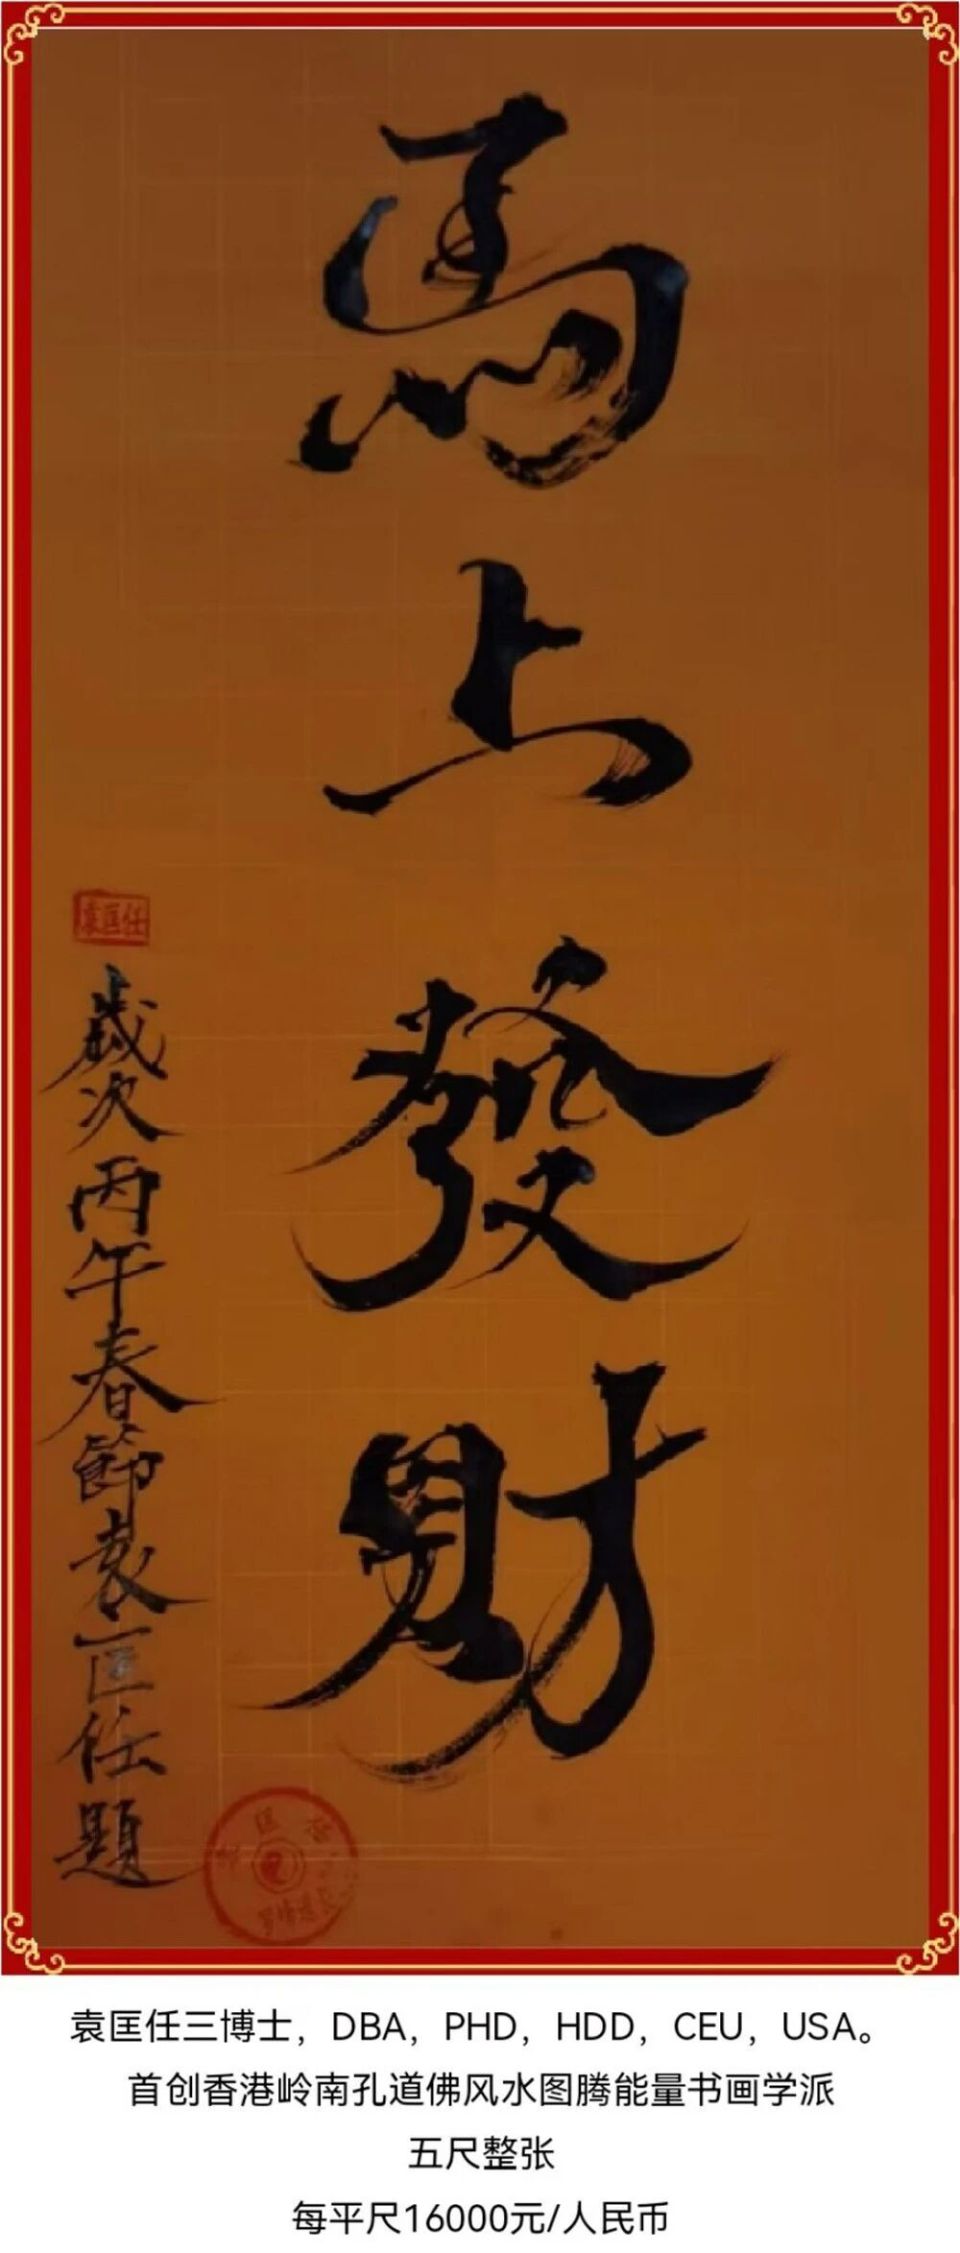 馬上發財
袁匡任
歲次丙午春節袁匡任題
袁匡任三博士，DBA，PHD，HDD，CEU，USA。
首创香港岭南孔道佛风水图腾能量书画学派
五尺整张
每平尺16000元/人民币